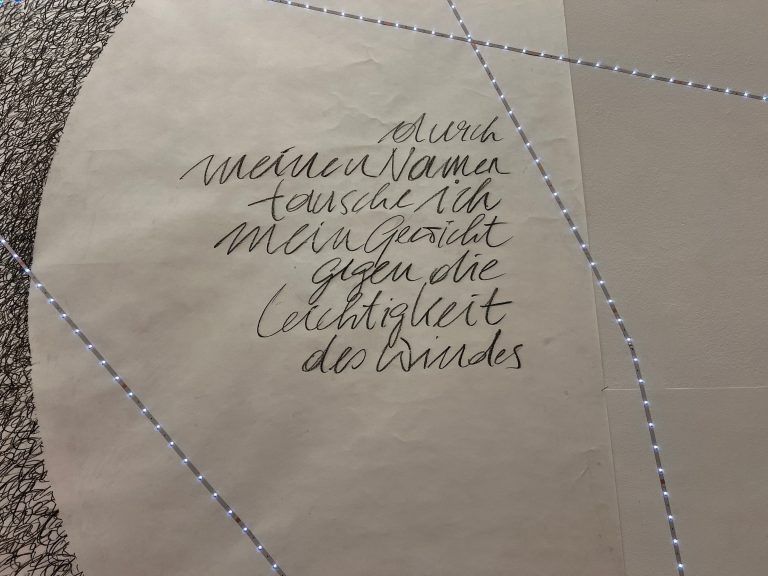 durch
meinen Namen
tausche ich
mein Gewicht
gegen die
Leichtigkeit
des Windes